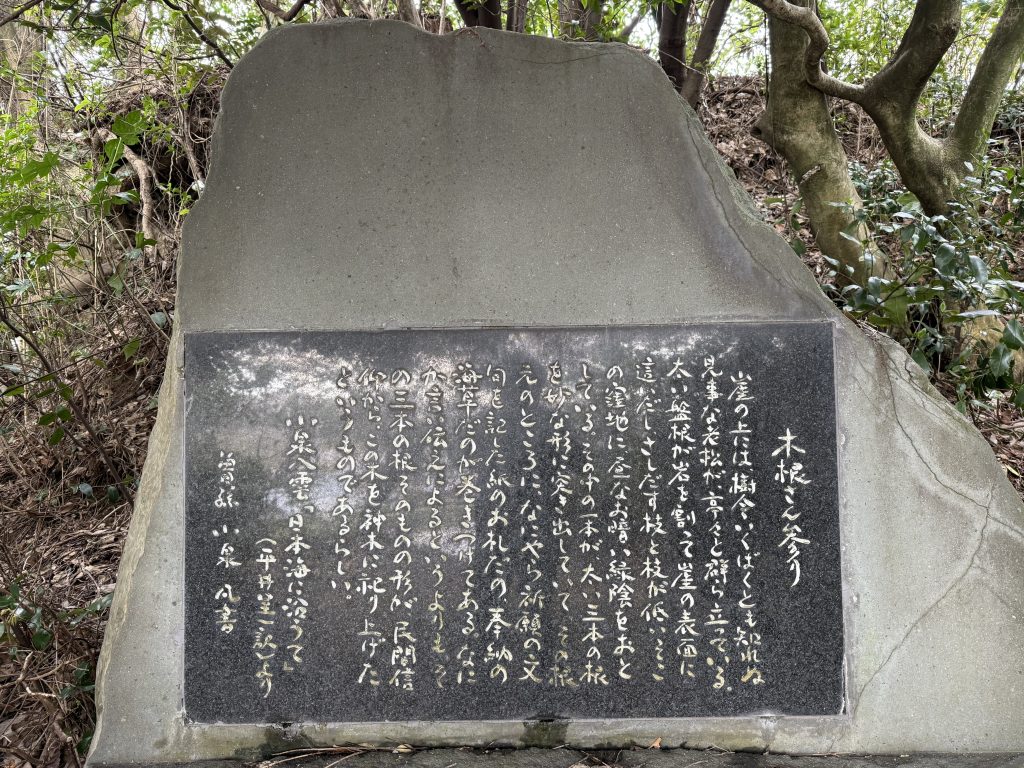 木根さん参り
崖の上には樹令いくばくとも知れぬ
見事な老松が亭々と群ら立っている。
太い盤根が岩を割って崖の表面に
這いだしさしだす枝と枝が低いそこ
の窪地に昼なお暗い緑陰をおと
している。その中の一本が、太い三本の根
を妙な形に突き出していて、その根
元のところに、なにやら祈願の文
句を記した紙のお札だの、奉納の
海草だのが巻きつけてある。なに
か言い伝えによるというよりも、そ
の三本の根そのものの形が、民間信
仰から、この木を神木に祀り上げた
というものであるらしい。
小泉八雲「日本海に沿うて」
(平井呈一訳より
曾孫 小泉 凡書